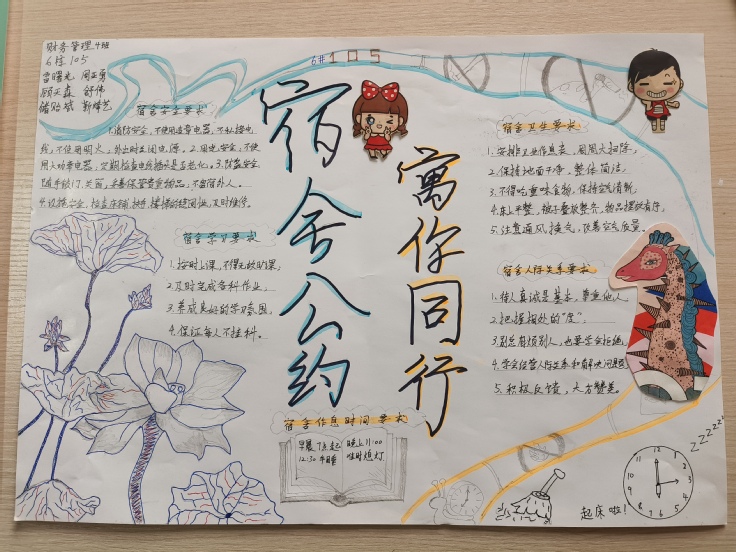 财务管理4班
6栋 105
雷曙光 周正勇
顾天森 舒伟
储贻斌 郭烽艺
6# 105
宿舍公约
寓你同行
宿舍安全要求
1.消防安全,不使用违章电器,不私接电
线,不使用明火,外出时关闭电源。2.用电安全,不使
用大功率电器,定期检查电线插头是否老化。3.防盗安全
随手锁门、关窗,妥善保管贵重物品,不留宿外人。
宿舍学习要求
1.按时上课,不得无故旷课;
2.及时完成各科作业;
3.养成良好的学习氛围,
4.保证每人不挂科。
宿舍作息时间要求
早晨7点起
12:30 午睡
晚上11:00
准时熄灯
宿舍卫生要求
1.安排卫生作息表,周周大扫除。
2.保持地面干净,整体简洁。
3.不得吃重味食物,保持空气清新
4.床上平整,被子叠放整齐,物品摆放有序。
5.注意通风换气,改善空气质量。
宿舍人际关系要求
1.待人真诚是基本,尊重他人。
2.把握相处的"度"。
3.别总麻烦别人,也要学会拒绝。
4.学会经营人际关系和解决问题
5.积极反馈,大方赞美。
ZZZZZZ
起床啦!
12
1
2
3
4
5
6
7
8
9
10
11